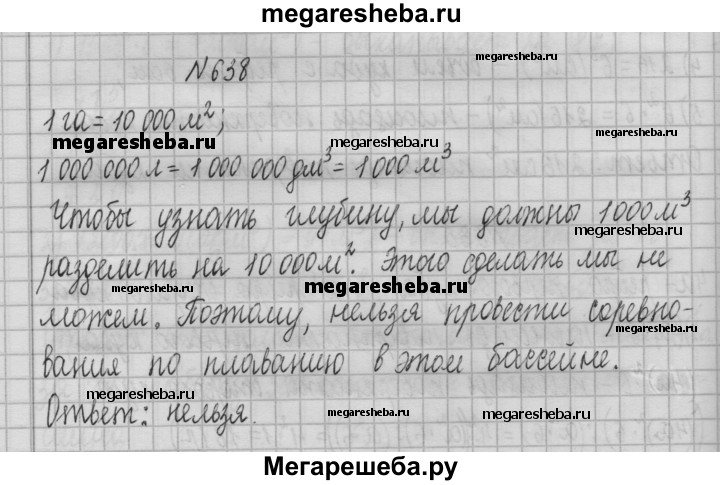 megaresheba.ru
N638
megaresheba.ru
1 га = 10 000 м²;
megaresheba.ru
megaresheba.ru
megaresheba.ru
1 000 000 л = 1 000 000 дм³ = 1000 м³
Чтобы узнать глубину, мы должны 1000 м³
megaresheba.ru
разделить на 10 000 м². Этого сделать мы не
megaresheba.ru
megaresheba.ru
megaresheba.ru
можем. Поэтому, нельзя провести соревно-
megaresheba.ru
вания по плаванию в этом бассейне.
megaresheba.ru
Ответ: нельзя.
megaresheba.ru
megaresheba.ru
Мегарешеба.ру